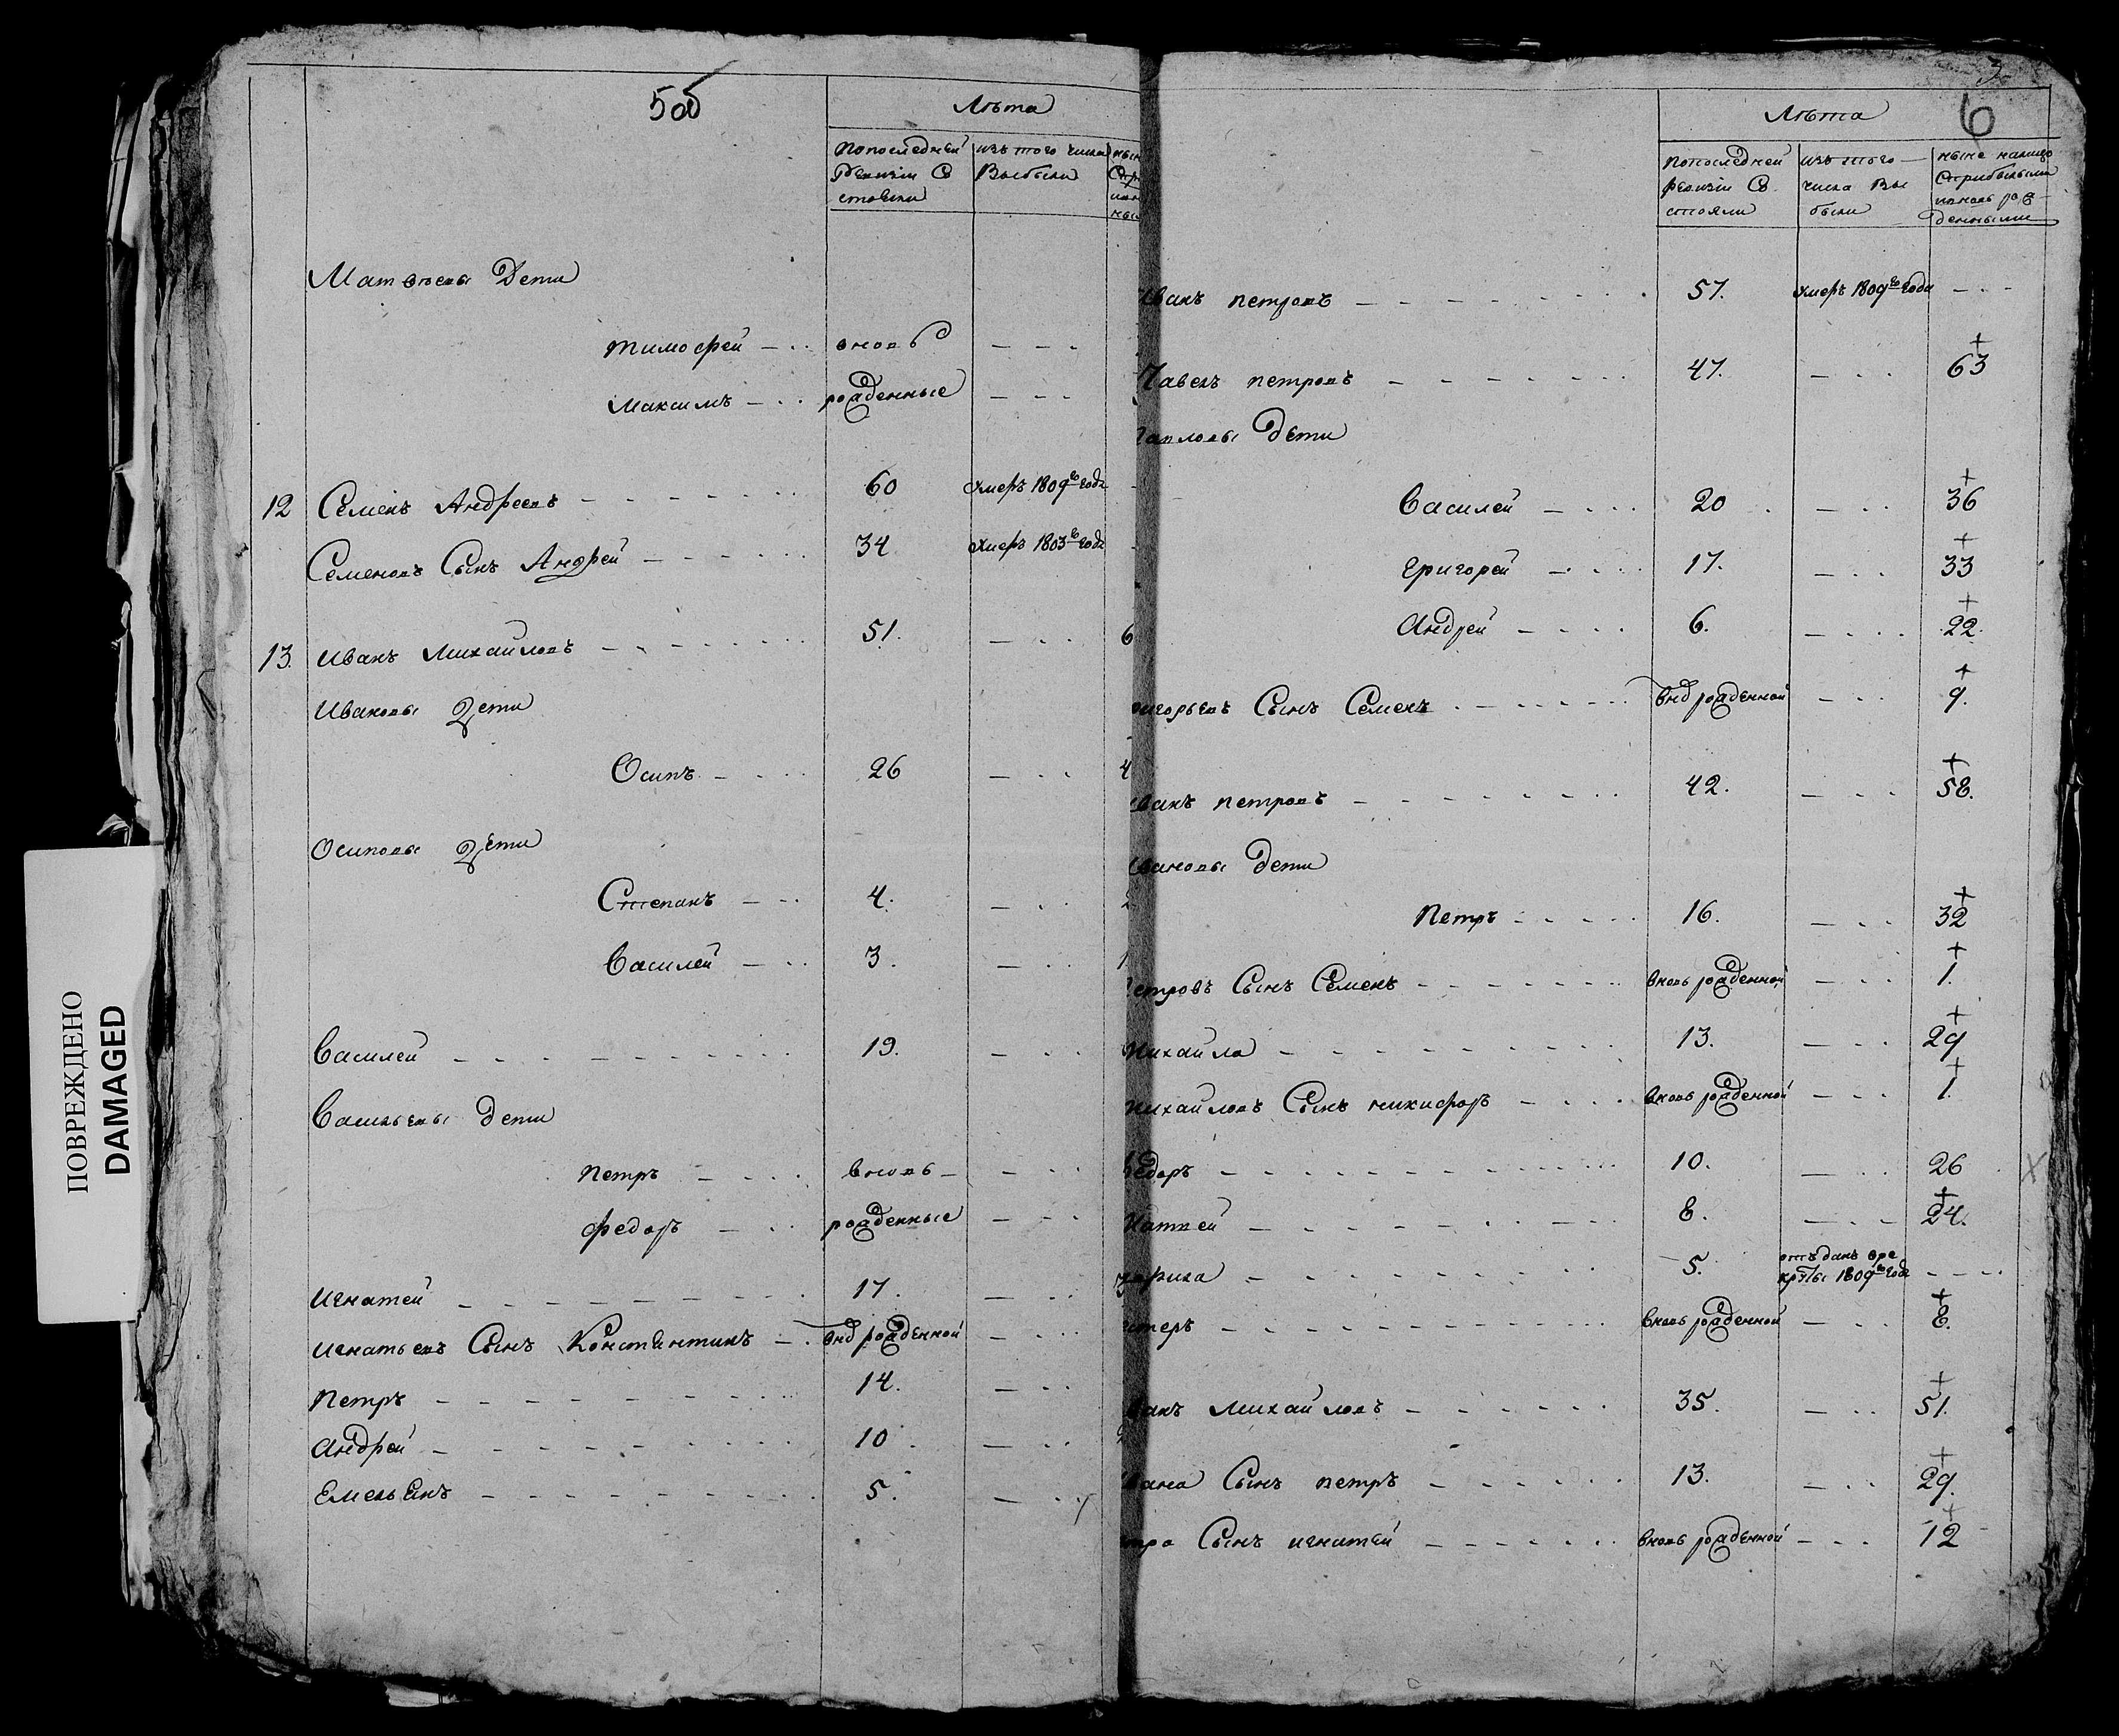 5 об
Лѣта
Попоследней изъ того числа
Ревизіи Со Выбыли
стояли
Матвѣевы Дети
Тимофей вновь
Максимъ рожденные
12 Семенъ Андреевъ 60 Умеръ 1809го года
Семеновъ Сынъ Андрей 34 Умеръ 1803го года
13. Иванъ Михайловъ 51. 6
Ивановы Дети
Осипъ 26 4
Осиповы Дети
Степанъ 4. 2
Василей 3. 1
Василей 19.
Васильевы дети
Петръ вновь
Федоръ рожденные
Игнатей 17. 3
Игнатьевъ Сынъ Константинъ внд рожденной
Петръ 14.
Андрей 10. 2
Емельянъ 5.
3
Лѣта 6
Попоследней изъ того ныне налицо
ревизіи Со числа Вы Сприбылыми
стояли были ивновь рож
денными
Иванъ Петровъ 57. Умеръ 1809го года
Павелъ Петровъ 47. 63
Павловы дети
Василей 20 36
Григорей 17. 33
Андрей 6. 22.
игорьевъ Сынъ Семенъ внд рожденной 9.
ванъ Петровъ 42. 58.
вановы дети
Петръ 16. 32
етровъ Сынъ Семенъ вновь рожденной 1.
Михайла 13. 29
Михайловъ Сынъ Никифоръ вновь рожденной 1.
Федоръ 10. 26
Матвей 8. 24.
аврила 5. отъданъ вре
круты 1809го года
вновь рожденной 8.
ванъ Михайловъ 35. 51.
вана Сынъ Петръ 13. 29.
тра Сынъ Игнатей вновь рожденной 12
ПОВРЕЖДЕНО
DAMAGED